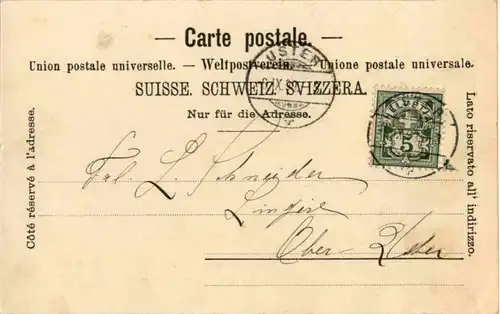 — Carte postale. —
Union postale universelle. — Weltpostverein. — Unione postale universale.
SUISSE. SCHWEIZ. SVIZZERA.
Nur für die Adresse.
Côté réservé à l'adresse.
Lato riservato all' indirizzo.
USTER
IX
5
Frl. L. Schneider
Lingère
Ober-Uster